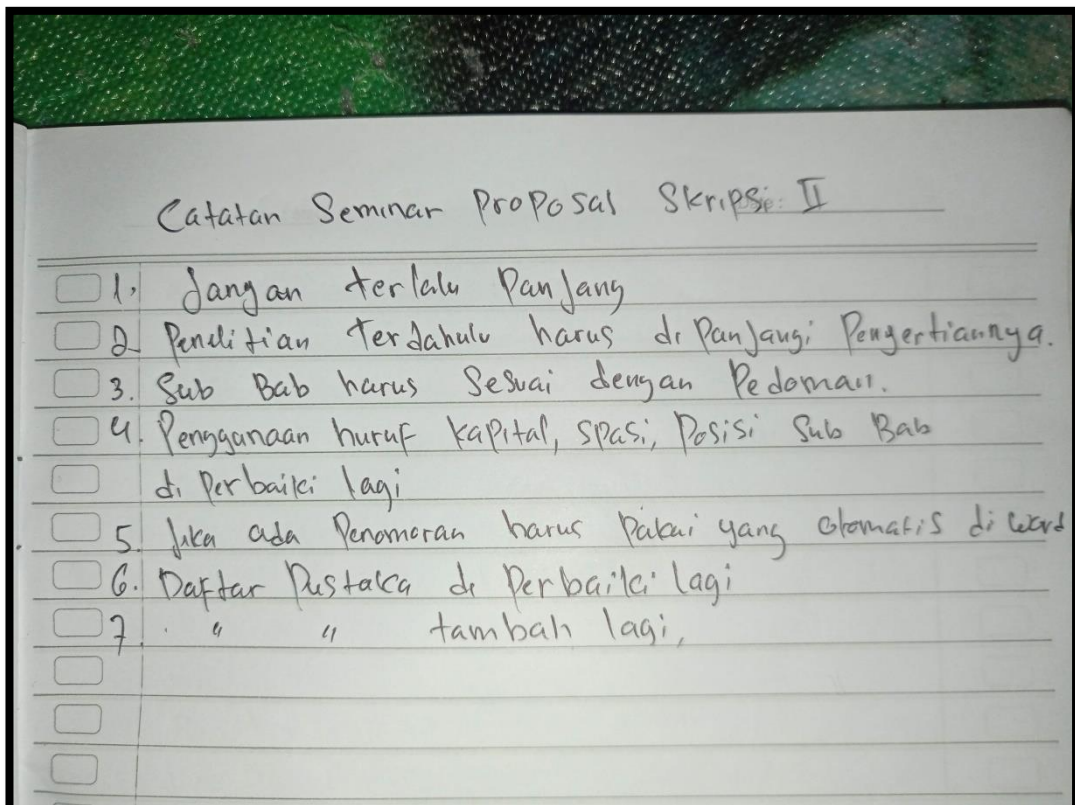 Catatan Seminar Proposal Skripsi II
1. Jangan terlalu Panjang
2 Penelitian Terdahulu harus di Panjangi Pengertiannya.
3. Sub Bab harus Sesuai dengan Pedoman.
4. Pengganaan huruf kapital, spasi, Posisi Sub Bab
di Perbaiki lagi
5. Jika ada Penomoran harus Pakai yang otomatis di word
6. Daftar Pustaka di Perbaiki lagi
7. " " tambah lagi,